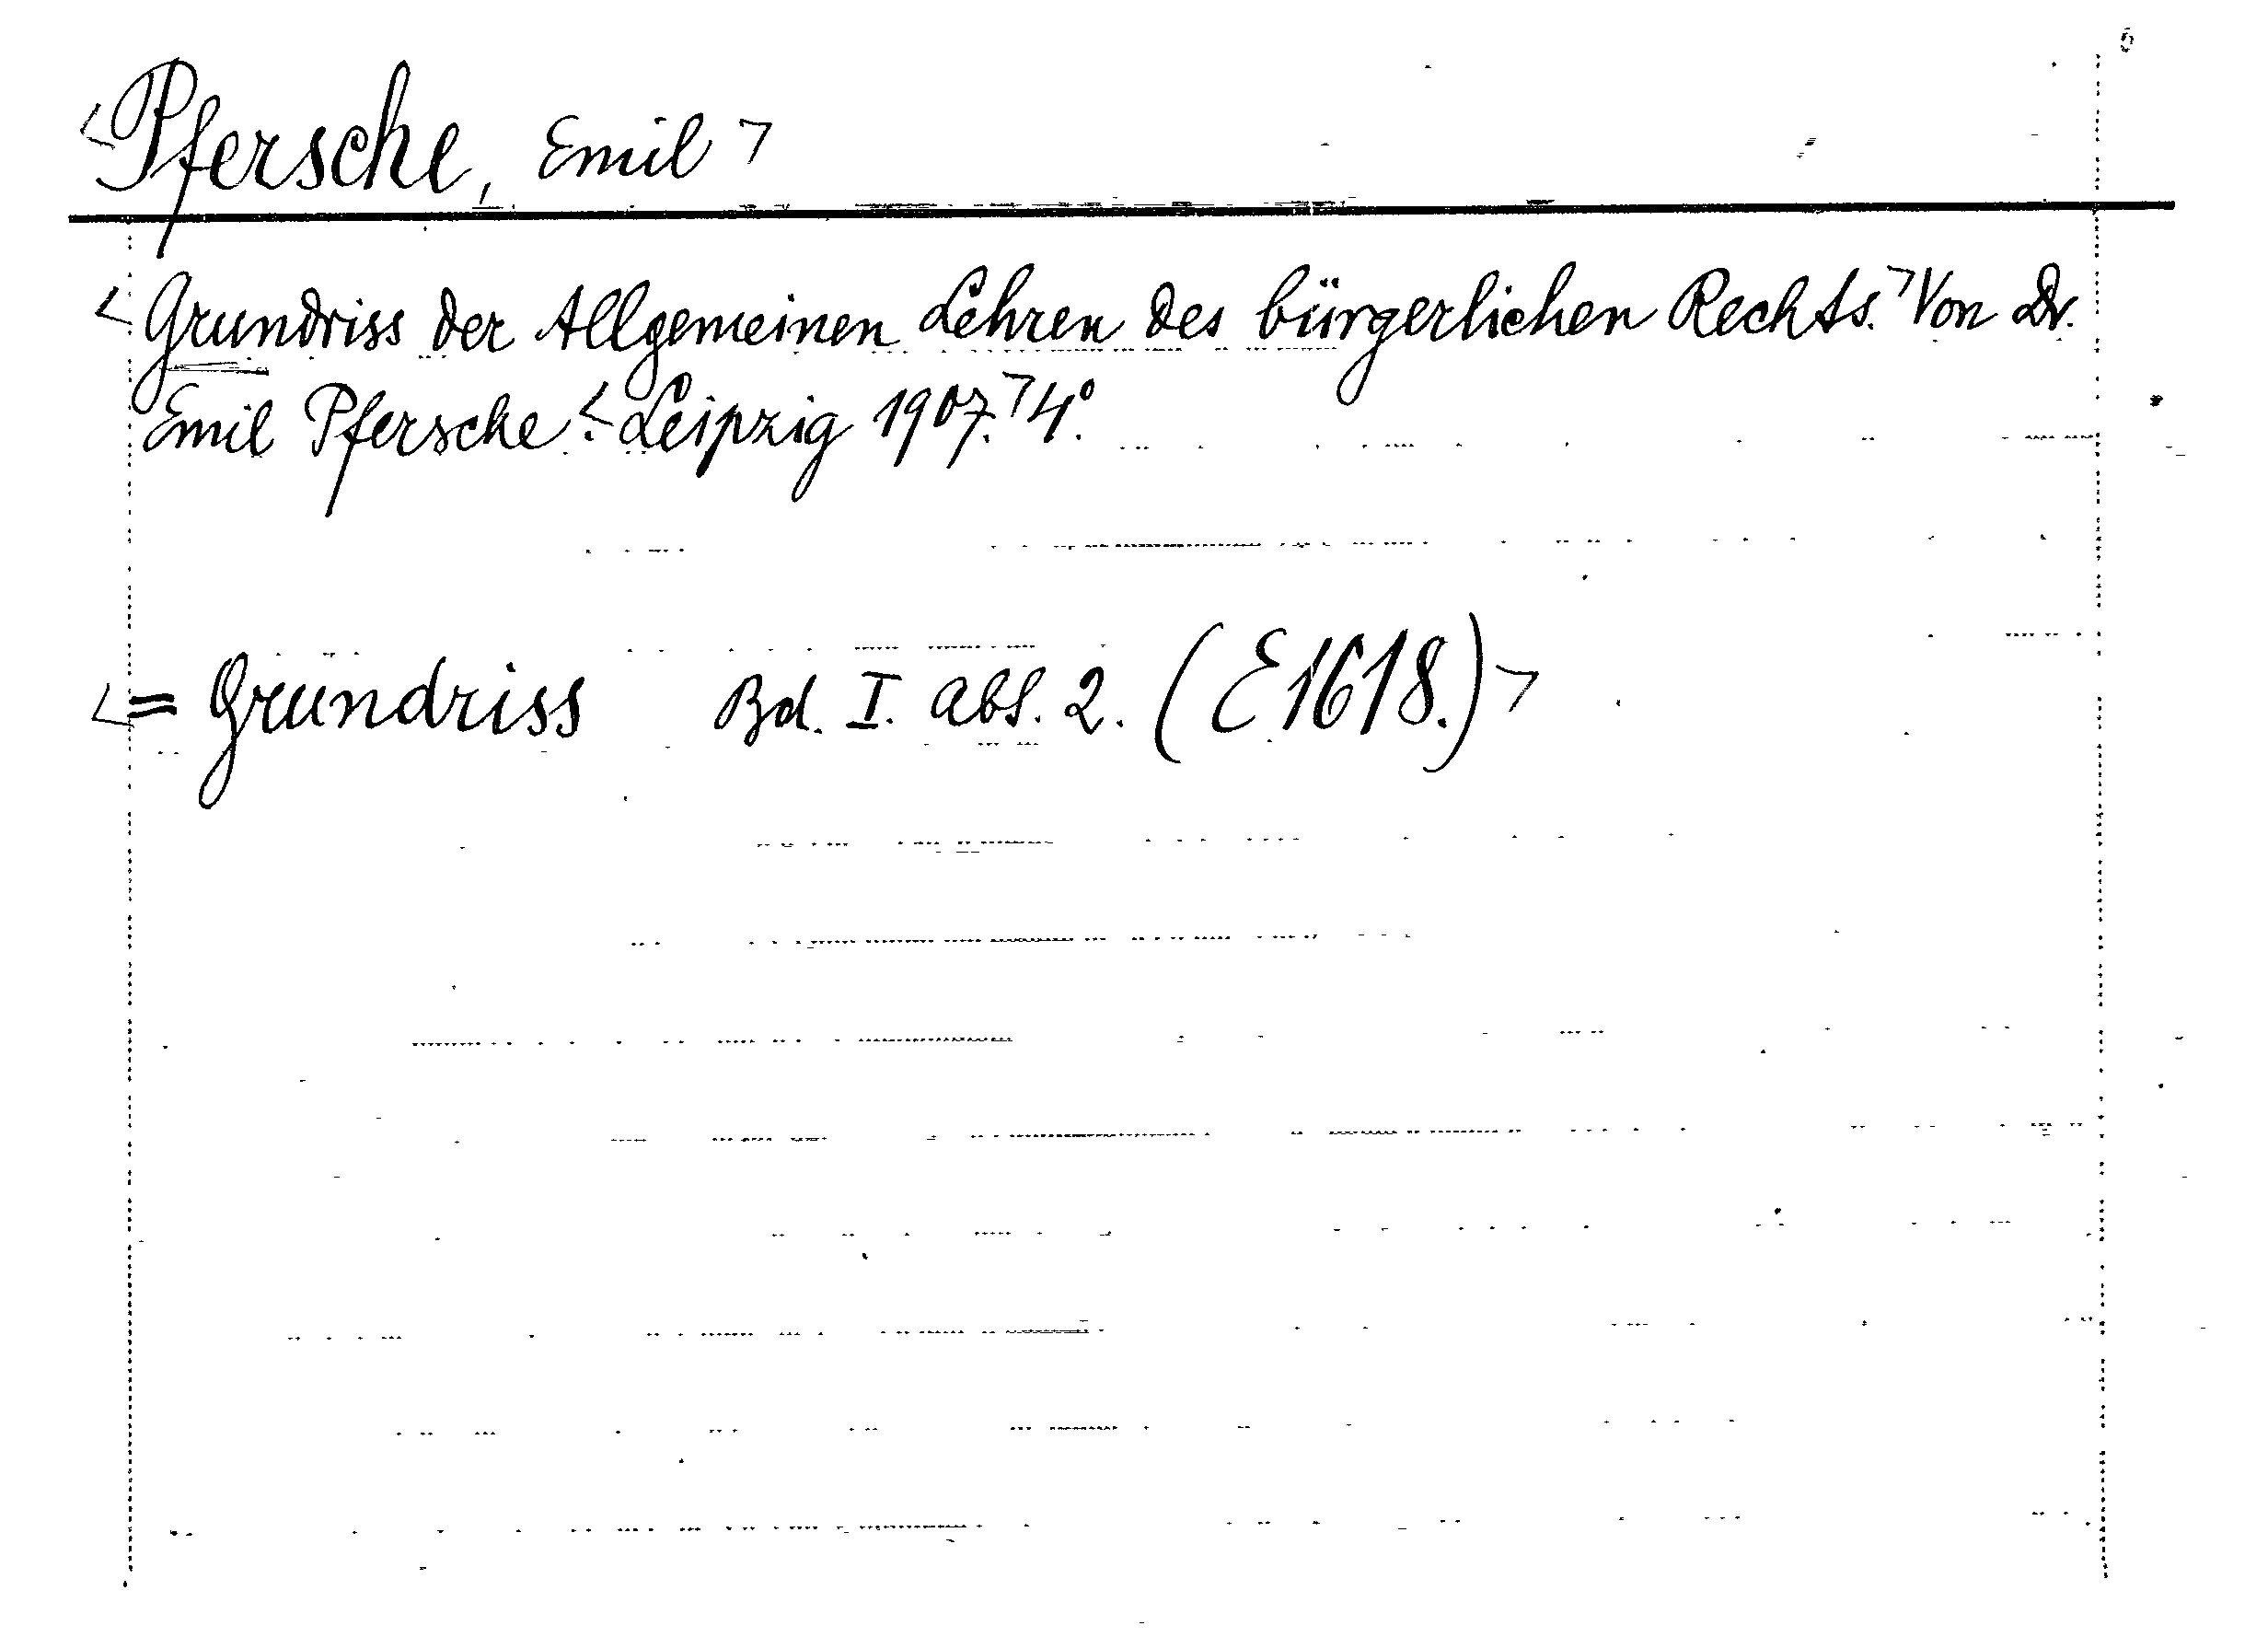 <Pfersche, Emil>
<Grundriss der Allgemeinen Lehren des bürgerlichen Rechts.> Von Dr.
Emil Pfersche.< Leipzig 1907.> 4°.
<= Grundriss Bd. I. Abt. 2. (E 1618.)>